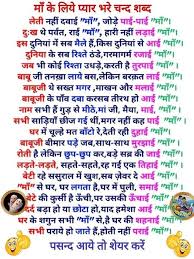 माँ के लिये प्यार भरे चन्द शब्द
लेती नहीं दवाई "माँ", जोड़े पाई-पाई "माँ"।
दुःख थे पर्वत, राई "माँ", हारी नहीं लड़ाई "माँ"।
इस दुनियां में सब मैले हैं, किस दुनियां से आई "माँ"।
दुनिया के सब रिश्ते ठंडे, गरमागर्म रजाई "माँ"।
जब भी कोई रिश्ता उधड़े, करती है तुरपाई "माँ"।
बाबू जी तनख़ा लाये बस, लेकिन बरक़त लाई "माँ"।
बाबूजी थे सख्त मगर, माखन और मलाई "माँ"।
बाबूजी के पाँव दबा कर सब तीरथ हो आई "माँ"।
नाम सभी हैं गुड़ से मीठे, मां जी, मैया, माई, "माँ"।
सभी साड़ियाँ छीज गई थीं, मगर नहीं कह पाई "माँ"।
घर में चूल्हे मत बाँटो रे, देती रही दुहाई "माँ"।
बाबूजी बीमार पड़े जब, साथ-साथ मुरझाई "माँ"।
रोती है लेकिन छुप-छुप कर, बड़े सब्र की जाई "माँ"।
लड़ते-लड़ते, सहते-सहते, रह गई एक तिहाई "माँ"।
बेटी रहे ससुराल में खुश, सब ज़ेवर दे आई "माँ"।
"माँ" से घर, घर लगता है, घर में घुली, समाई "माँ"।
बेटे की कुर्सी है ऊँची, पर उसकी ऊँचाई "माँ"।
दर्द बड़ा हो या छोटा हो, याद हमेशा आई "माँ"।
घर के शगुन सभी "माँ" से, है घर की शहनाई "माँ"।
सभी पराये हो जाते हैं, होती नहीं पराई "माँ"।
पसन्द आये तो शेयर करें